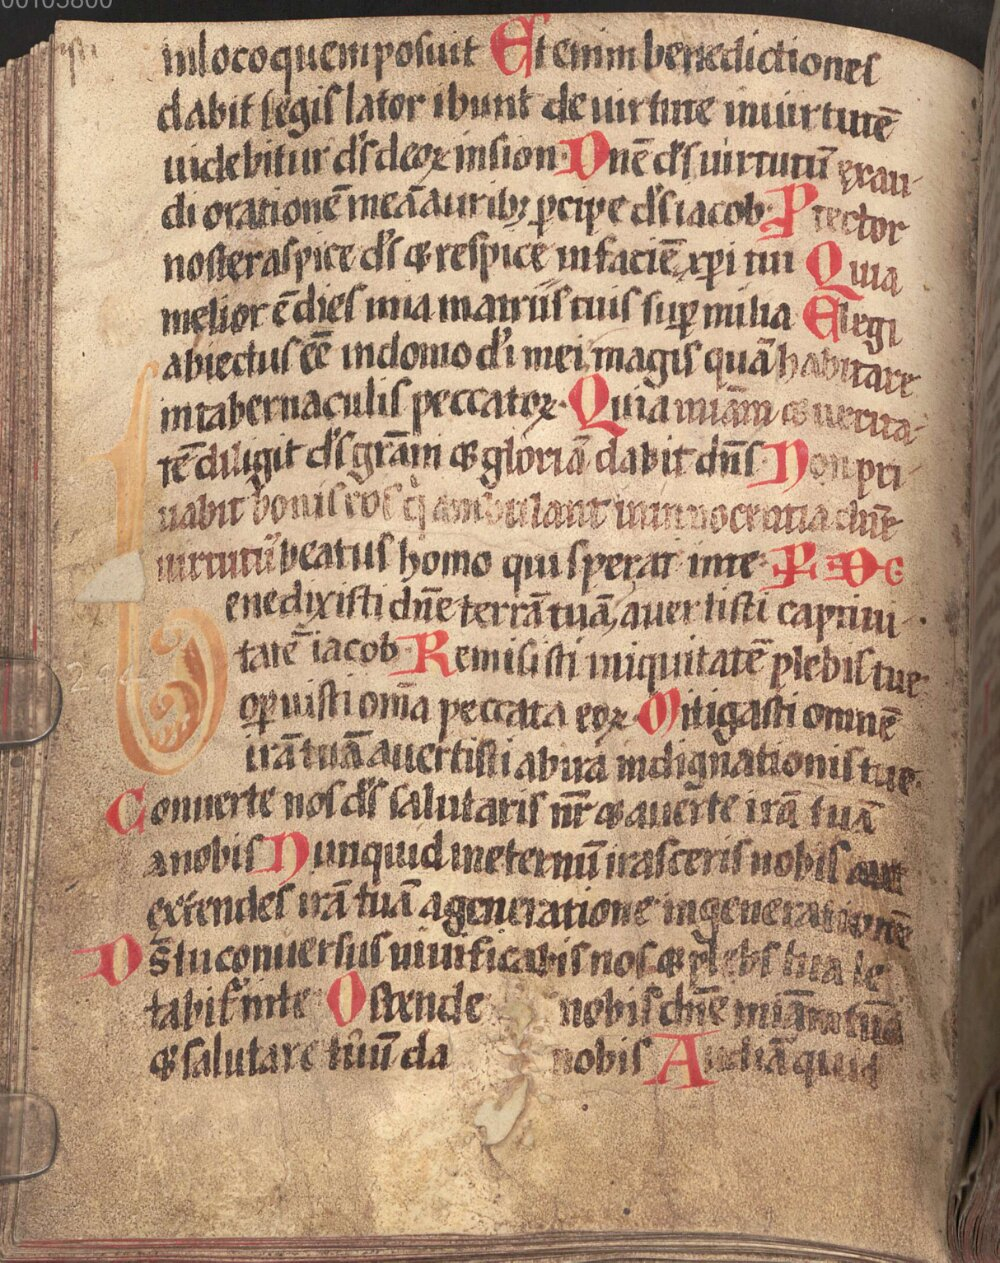 00105800
in loco quem posuit Et enim benedictiones
dabit legis lator ibunt de uirtute in uirtutē
uidebitur d̄s deoꝝ in sion Dn̄e d̄s uirtutū exau-
di orationē meā auribꝫ ꝑcipe d̄s iacob Ptector
noster aspice d̄s ⁊ respice in faciē xp̄i tui Quia
melior ē dies una in atriis tuis suꝑ milia Elegi
abiectus ēē in domo d̄i mei magis quā habitare
in tabernaculis peccatoꝝ Quia miām ⁊ uerita-
tē diligit d̄s grām ⁊ gloriā dabit dn̄s Non pri-
uabit bonis eos q̇ ambulant in innocentia dn̄e
uirtutū beatus homo qui sperat in te
Benedixisti dn̄e terrā tuā, auertisti captiui
tatē iacob Remisisti iniquitatē plebis tue
oꝑuisti om̄a peccata eoꝝ Mitigasti omnē
irā tuā auertisti ab ira indignationis tue
Conuerte nos d̄s salutaris nr̄ ⁊ auerte irā tuā
a nobis Nunquid in eternū irasceris nobis aut
extendes irā tuā a generatione in generationē
Ds̄ tu conuersus uiuificabis nos ⁊ plebs tua le
tabit᷑ in te Ostende nobis dn̄e miām tuā
⁊ salutare tuū da nobis Audiā quid